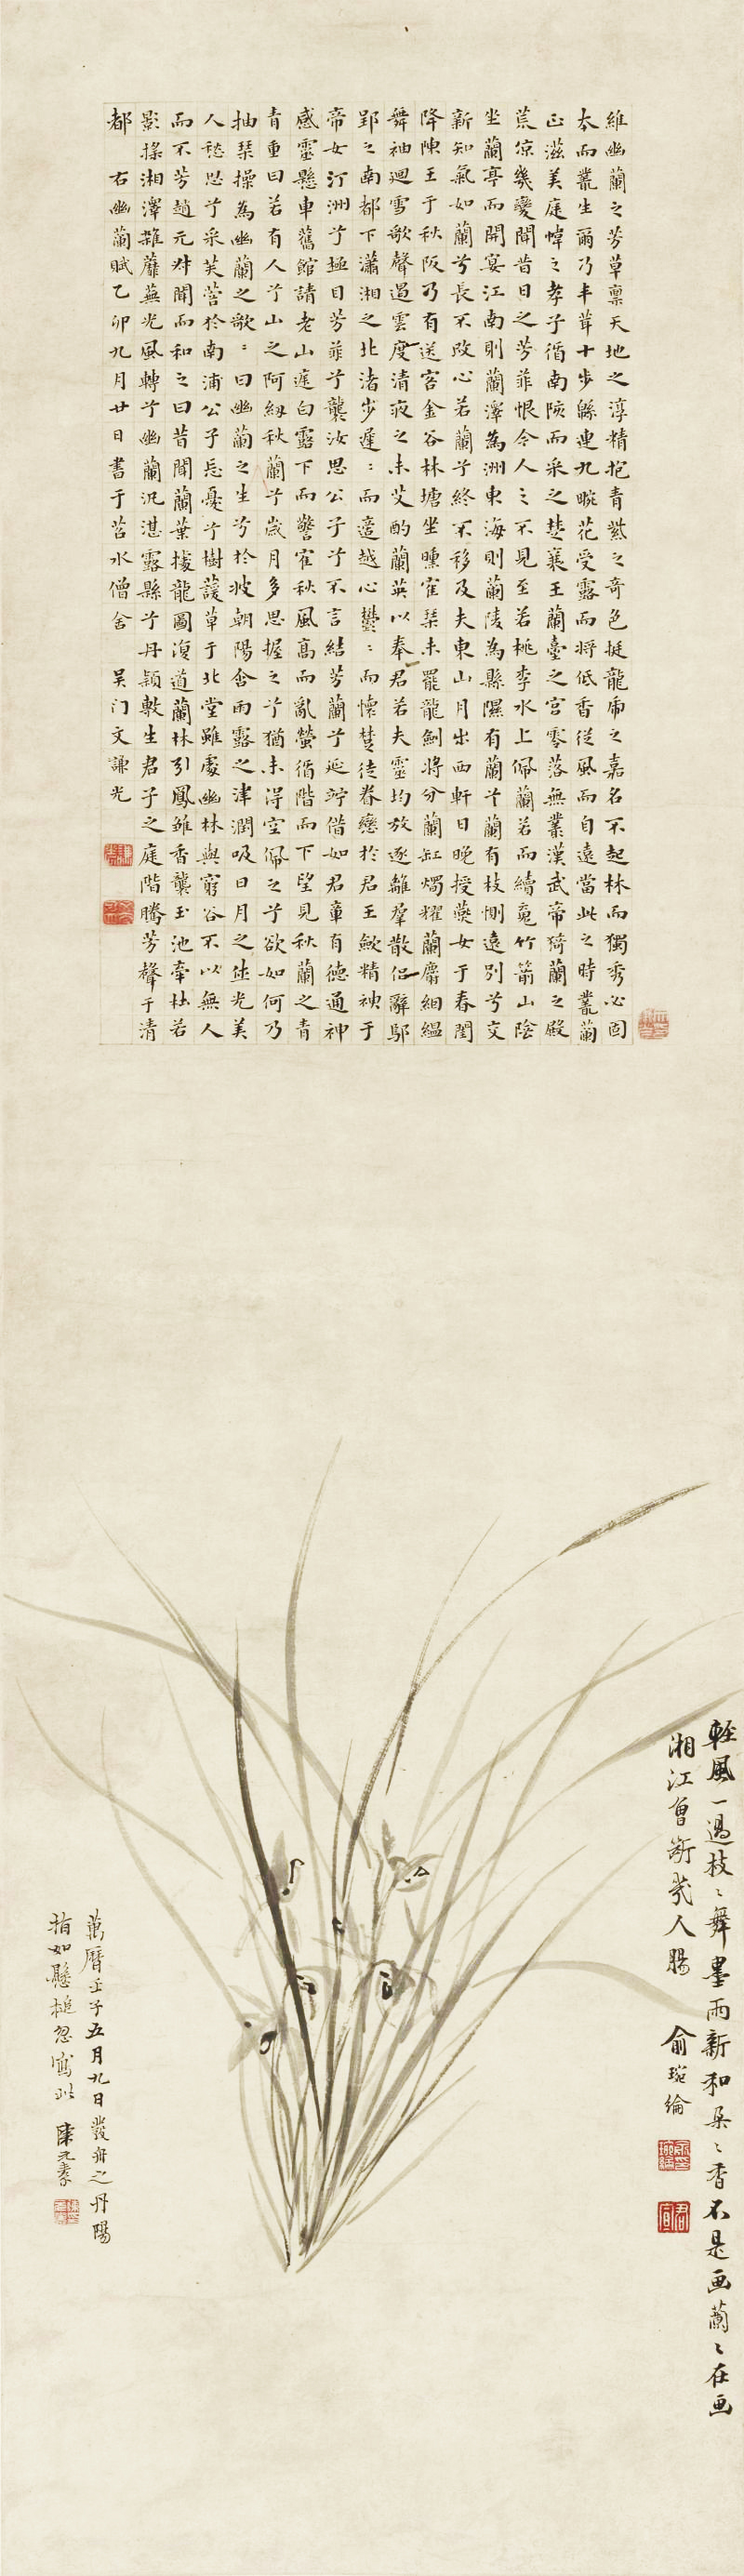 維幽蘭之芳草稟天地之淳精抱青紫之奇色挺龍虎之嘉名不起林而獨秀必固
本而叢生爾乃丰茸十步緜連九畹花受露而將低香從風而自遠當此之時叢蘭
正滋美庭幃之孝子循南陔而采之楚襄王蘭臺之宮零落無叢漢武帝猗蘭之殿
荒涼幾變聞昔日之芳菲恨今人之不見至若桃李水上佩蘭若而續魂竹箭山陰
坐蘭亭而開宴江南則蘭澤為洲東海則蘭陵為縣隰有蘭兮蘭有枝惻遠別兮交
新知氣如蘭兮長不改心若蘭兮終不移及夫東山月出西軒日晚授燕女于春閨
降陳王于秋阪乃有送客金谷林塘坐曛隺琴未罷龍劍將分蘭缸燭耀蘭麝細縕
舞袖迴雪歌聲遏雲度清夜之未艾酌蘭英以奉君若夫靈均放逐離羣散侶辭鄢
郢之南都下瀟湘之北渚步遲〻而適越心鬱〻而懷楚徒眷戀於君王歛精神于
帝女汀洲兮極目芳菲兮襲汝思公子兮不言結芳蘭兮延竚借如君章有德通神
感靈懸車舊館請老山庭白露下而警隺秋風高而亂螢循階而下望見秋蘭之青
青重曰若有人兮山之阿紉秋蘭兮歲月多思握之兮猶未得空佩之兮欲如何乃
抽琴操為幽蘭之歌〻曰幽蘭之生兮於彼朝陽含雨露之津潤吸日月之休光美
人愁思兮采芙蓉於南浦公子忘憂兮樹萲草于北堂雖處幽林與窮谷不以無人
而不芳趙元叔聞而和之曰昔聞蘭葉據龍圖復道蘭林引鳳雛香襲玉池牽杜若
影搖湘澤雜蘼蕪光風轉兮幽蘭汎湛露縣兮丹穎敷生君子之庭階騰芳馨于清
都 右幽蘭賦乙卯九月廿日書于苕水僧舍 吳门文謙光
輕風一過枝〻舞墨雨新和朵〻香不是画蘭〻在画
湘江曾斷幾人腸 俞琬綸
君宣
萬曆壬子五月九日發舟之丹陽
指如懸槌忽寫此 陳元素